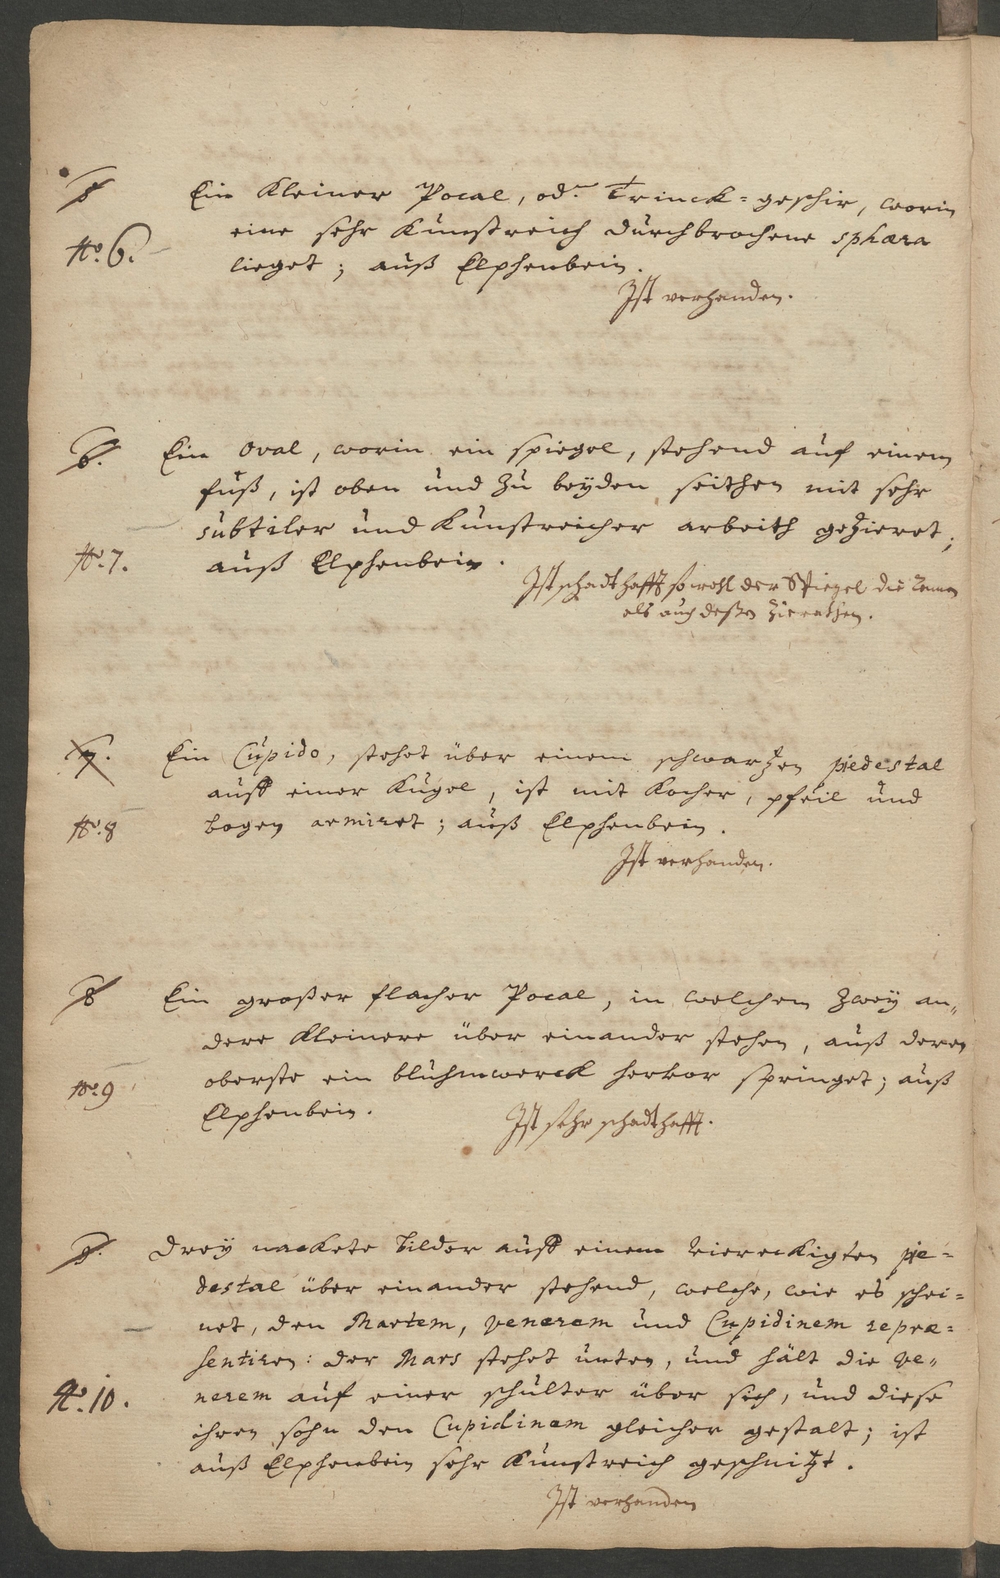 5
Ein kleiner Pocal, od. Trinck=geschir, worin
No. 6.
eine sehr kunstreich durchbrochene sphæra
lieget; auß Elphenbein.
Ist verhanden.
6.
Ein oval, worin ein spiegel, stehend auf einem
fuß, ist oben und zu beyden seithen mit sehr
subtiler und kunstreicher arbeith gezieret;
No. 7.
auß Elphenbein.
Ist schadthafft sowohl der Spiegel die
als auch deßen Zierathen.
7.
Ein Cupido, stehet über einem schwartzen piedestal
auff einer kugel, ist mit kocher, pfeil und
No. 8
bogen armiret; auß Elphenbein.
Ist verhanden.
8
Ein großer flacher Pocal, in welchem zwey an„
dere kleinere über einander stehen, auß deren
No. 9
oberste ein bluhmwerck hervor springet; auß
Elphenbein.
Ist sehr schadthafft.
9.
Drey nackete bilder auff einem viereckigten pie=
destal über einander stehend, welche, wie es schei=
net, den Martem, Venerem und Cupidinem repræ=
sentiren: der Mars stehet unten, und hält die Ve„
No. 10.
nerem auf einer schulter über sich, und diese
ihren sohn den Cupidinem gleicher gestalt; ist
auß Elphenbein sehr kunstreich geschnitzt.
Ist verhanden